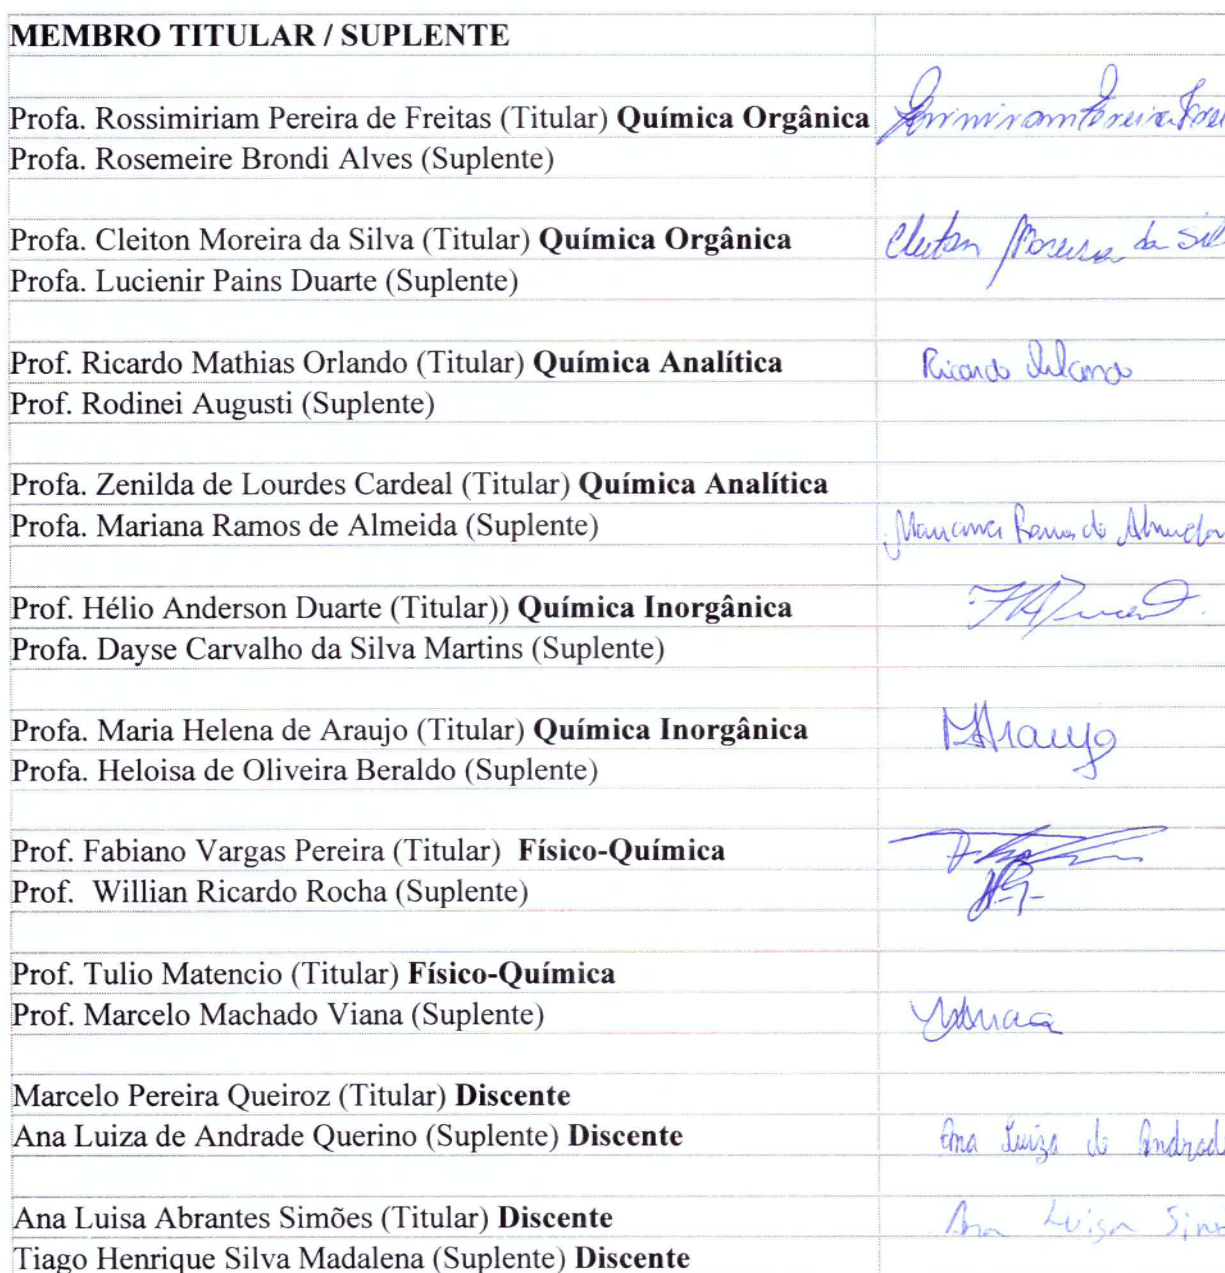 MEMBRO TITULAR / SUPLENTE
Profa. Rossimiriam Pereira de Freitas (Titular) Química Orgânica
Profa. Rosemeire Brondi Alves (Suplente)
Profa. Cleiton Moreira da Silva (Titular) Química Orgânica Cleiton Moreira da Sil
Profa. Lucienir Pains Duarte (Suplente)
Prof. Ricardo Mathias Orlando (Titular) Química Analítica Ricardo Orlando
Prof. Rodinei Augusti (Suplente)
Profa. Zenilda de Lourdes Cardeal (Titular) Química Analítica
Profa. Mariana Ramos de Almeida (Suplente) Mariana Ramos de Almeida
Prof. Hélio Anderson Duarte (Titular)) Química Inorgânica
Profa. Dayse Carvalho da Silva Martins (Suplente)
Profa. Maria Helena de Araujo (Titular) Química Inorgânica MHAraujo
Profa. Heloisa de Oliveira Beraldo (Suplente)
Prof. Fabiano Vargas Pereira (Titular) Físico-Química
Prof. Willian Ricardo Rocha (Suplente)
Prof. Tulio Matencio (Titular) Físico-Química
Prof. Marcelo Machado Viana (Suplente)
Marcelo Pereira Queiroz (Titular) Discente
Ana Luiza de Andrade Querino (Suplente) Discente Ana Luiza de Andrade
Ana Luisa Abrantes Simões (Titular) Discente Ana Luisa Simõ
Tiago Henrique Silva Madalena (Suplente) Discente